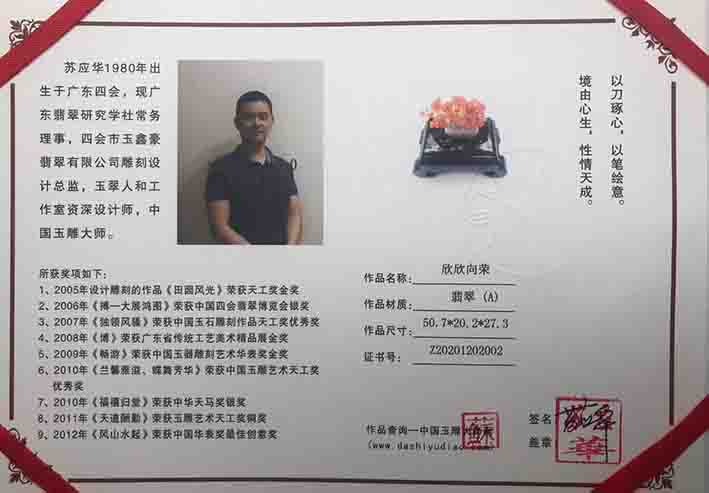 苏应华1980年出
生于广东四会，现广
东翡翠研究学社常务
理事，四会市玉鑫豪
翡翠有限公司雕刻设
计总监，玉翠人和工
作室资深设计师，中
国玉雕大师。
以刀琢心，以笔绘意。
境由心生，性情天成。
所获奖项如下：
1、2005年设计雕刻的作品《田园风光》荣获天工奖金奖
2、2006年《搏一大展鸿图》荣获中国四会翡翠博览会银奖
3、2007年《独领风骚》荣获中国玉石雕刻作品天工奖优秀奖
4、2008年《博》荣获广东省传统工艺美术精品展金奖
5、2009年《畅游》荣获中国玉器雕刻艺术华表奖金奖
6、2010年《兰馨雅溢、蝶舞芳华》荣获中国玉雕艺术天工奖
优秀奖
7、2010年《福禧归堂》荣获中华天马奖银奖
8、2011年《天道酬勤》荣获玉雕艺术天工奖铜奖
9、2012年《风山水起》荣获中国华表奖最佳创意奖
作品名称： 欣欣向荣
作品材质： 翡翠 (A)
作品尺寸： 50.7*20.2*27.3
证书号： Z20201202002
作品查询—中国玉雕大
(www.dashiyudiao.com)
签名
盖章
華